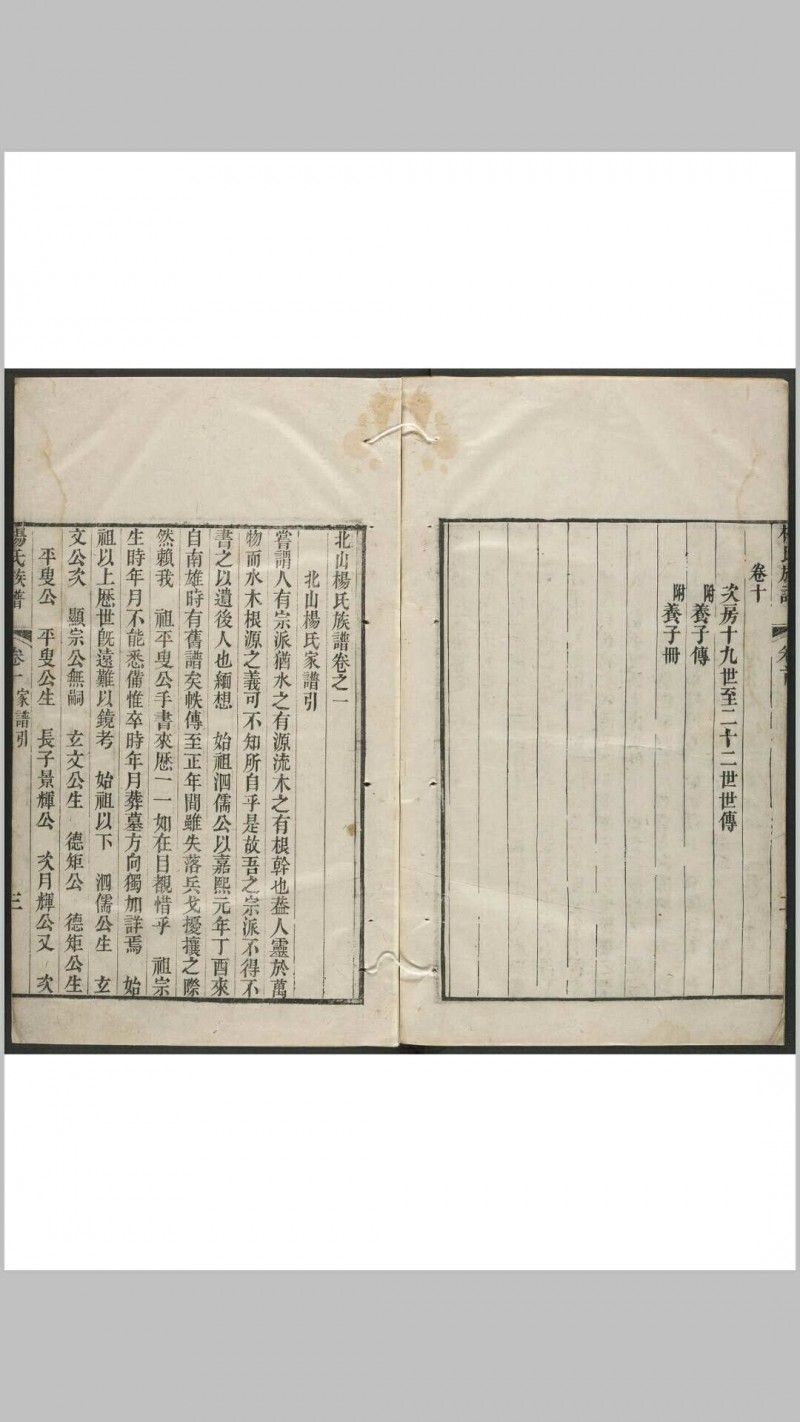 卷十
次房十九世至二十二世世傳
附養子傳
附養子冊
北山楊氏族譜卷之一
北山楊氏家譜引
嘗謂人有宗派猶水之有源流木之有根幹也葢人靈於萬
物而水木根源之義可不知所自乎是故吾之宗派不得不
書之以遺後人也緬想　始祖泗儒公以嘉熙元年丁酉來
自南雄時有舊譜矣帙傳至正年間雖失落兵戈擾攘之際
然賴我　祖平叟公手書來歷一一如在目覩惜乎　祖宗
生時年月不能悉備惟卒時年月葬墓方向獨加詳焉　始
祖以上歷世旣遠難以鏡考　始祖以下　泗儒公生　玄
文公次　顯宗公無嗣　玄文公生　德矩公　德矩公生
平叟公　平叟公生　長子景輝公　次月輝公又　次
楊氏族譜　卷一家譜引　三